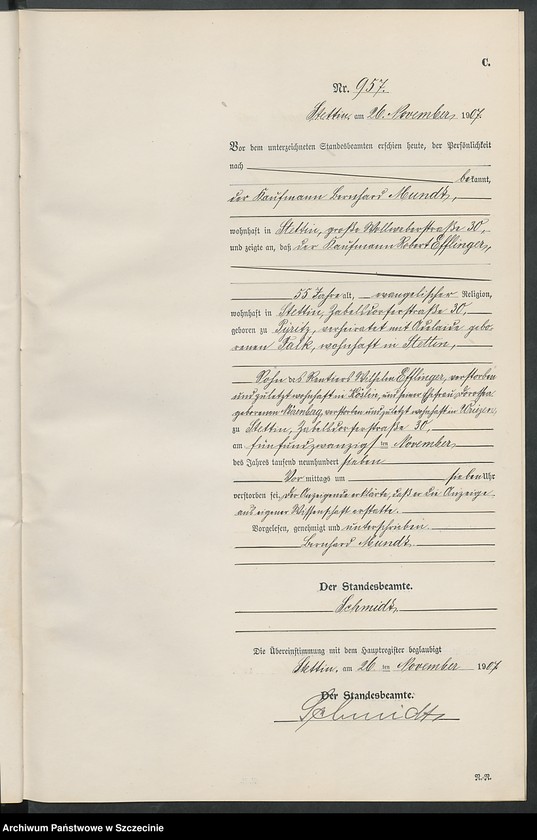 C.
Nr. 957.
Stettin, am 26. November 1907.
Vor dem unterzeichneten Standesbeamten erschien heute, der Persönlichkeit
nach
bekannt,
der Kaufmann Bernhard Mundt,
wohnhaft in Stettin, große Wollweberstraße 30,
und zeigte an, daß der Kaufmann Robert Efflinger,
55 Jahre alt, evangelischer Religion,
wohnhaft in Stettin, Zabelsdorferstraße 30,
geboren zu Pyritz, verheiratet mit Adelaide gebo-
renen Falk, wohnhaft in Stettin,
Sohn des Rentiers Wilhelm Efflinger, verstorben
und zuletzt wohnhaft in Köslin, und seiner Ehefrau Dorothea
geborenen verstorben und zuletzt wohnhaft in
zu Stettin, Zabelsdorferstraße 30,
am fünfundzwanzigsten November
des Jahres tausend neunhundert sieben
Vormittags um sieben Uhr
verstorben sei, der Anzeigende erklärte, daß er die Anzeige
aus eigener Wissenschaft erstatte.
Vorgelesen, genehmigt und unterschrieben
Bernhard Mundt.
Der Standesbeamte.
Schmidt.
Die Übereinstimmung mit dem Hauptregister beglaubigt
Stettin, am 26ten November 1907
Der Standesbeamte.
Schmidt
N.N.
Archiwum Państwowe w Szczecinie